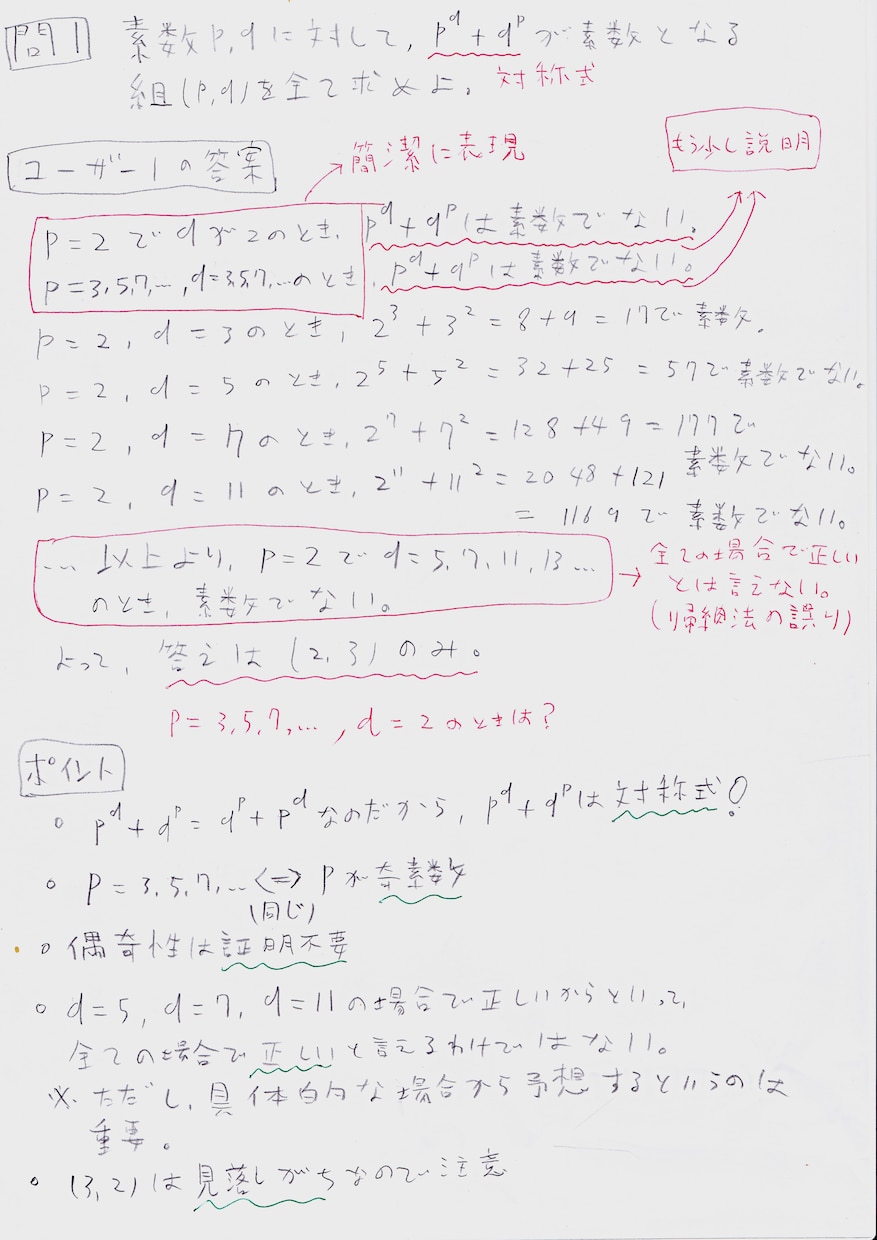 問1 素数p,qに対して, p^q+q^pが素数となる
組(p,q)を全て求めよ。 対称式
もう少し説明
ユーザー1の答案 簡潔に表現
p=2でqが2のとき, p^q+q^pは素数でない。
p=3,5,7,…,q=3,5,7,…のとき, p^q+q^pは素数でない。
p=2, q=3のとき, 2^3+3^2=8+9=17で素数。
p=2, q=5のとき, 2^5+5^2=32+25=57で素数でない。
p=2, q=7のとき, 2^7+7^2=128+49=177で
素数でない。
p=2, q=11のとき, 2^11+11^2=2048+121
=1169で素数でない。
… 以上より, p=2でq=5,7,11,13…
のとき, 素数でない。
→ 全ての場合で正しい
とは言えない。
(帰納法の誤り)
よって, 答えは(2,3)のみ。
p=3,5,7,…, q=2のときは?
ポイント
○ p^q+q^p=q^p+p^qなのだから, p^q+q^pは対称式!
○ p=3,5,7,… <=> pが奇素数
(同じ)
○ 偶奇性は証明不要
○ q=5, q=7, q=11の場合で正しいからといって,
全ての場合で正しいと言えるわけではない。
※ ただし, 具体的な場合から予想するというのは
重要。
○ (3,2)は見落しがちなので注意